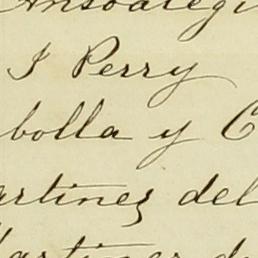 Ansoategi
J Perry
bolla y C
artinez del
artinez de